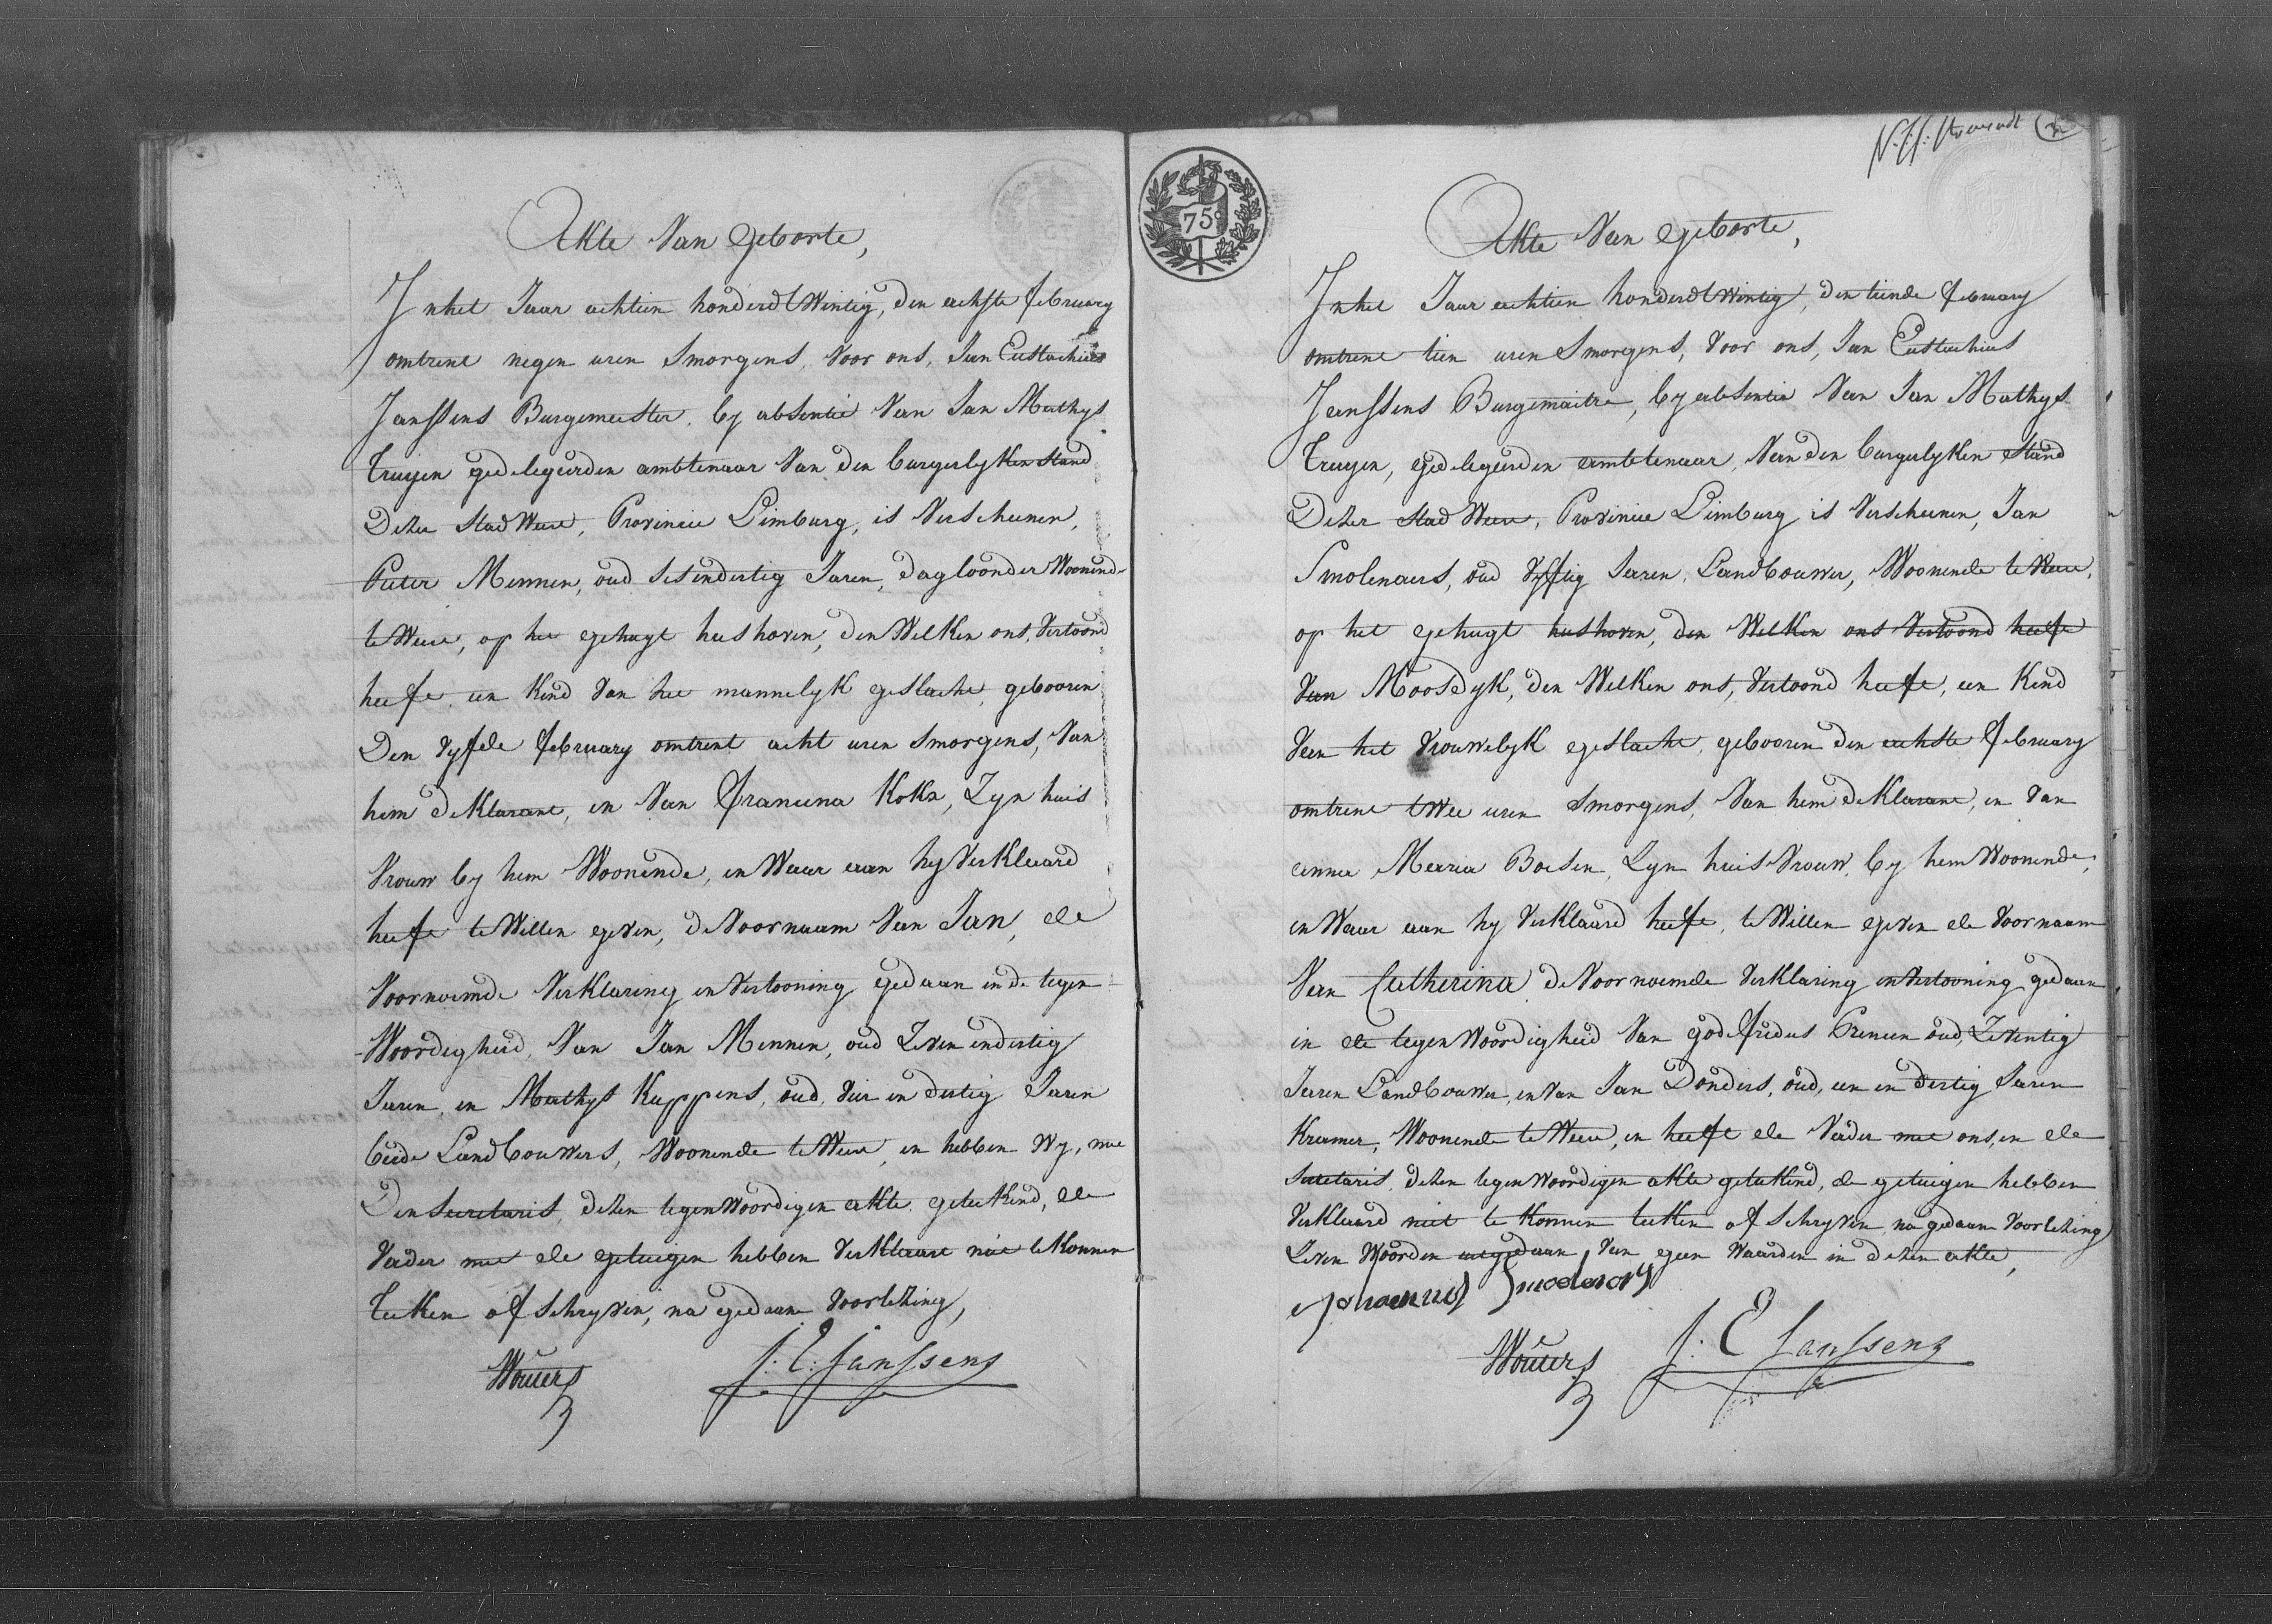 Akte Van geborte,
Inhet Jaar achtien honderdtwintig, den achste february
omtrent negen uren Smorgens, Voor ons, Jan Eustachius
Janssens Burgemeester, by absentie Van Jan Mathys
Truyen gedelegeerden ambtenaar Van den burgerlyken Stand
Dezer Stad Weert, Provincie Limburg, is Verscheenen,
Pieter Mennen, oud Sesendertig Jaren, dagloonder Woonend-
te Weert, op het gehugt hushoven, den Welken ons, Vertoond
heeft, een Kind Van het mannelyk geslacht, gebooren
Den Vyfde february omtrent acht uren Smorgens, Van
hem deklarant, en Van Francina Kokx, Zyn huis
Vrouw by hem Woonende, en Waar aan hy Verklaard
heeft te Willen geven, de Voornaam Van Jan, de
Voornoemde Verklaring en Vertooning gedaan in de tegen-
Woordigheid, Van Jan Mennen, oud Zeven endertig
Jaren, en Mathys Kuppens, oud, Vier en dertig Jaren
beide Landbouwers, Woonende te Weert, en hebben Wy, met
Den Secretaris, dezen tegenwoordigen akte, geteekend, de
Vader met de getuigen hebben Verklaart niet te konnen
teeken of Schryven, na gedaane Voorlezing,
Wouters J: E: Janssens
75
Akte Van geborte,
Inhet Jaar achtien honderdtwintig, den tiende february
omtrent tien uren Smorgens, Voor ons, Jan Eustachius
Janssens Burgemaitre, by absentie Van Jan Mathys
Truyen, gedelegeerden ambtenaar, Van den burgerlyken Stand
Dezer Stad Weert, Provincie Limburg is Verscheenen, Jan
Smolenaers, oud Vyftig Jaren, Landbouwer, Woonende te Weert,
op het gehugt hushoven, den Welken ons Vertoond heeft
Van Moosdyk, den Welken ons, Vertoond heeft, een Kind
Van het Vrouwelyk geslacht, gebooren den achste february
omtrent twee uren Smorgens, Van hem deklarant, en Van
anna Maria Boesen, Zyn huis Vrouw, by hem Woonende,
en Waar aan hy Verklaard heeft, te Willen geven de Voornaam
Van Catherina de Voornoemde Verklaring en Vertooning gedaan
in de tegenwoordigheid Van godefridus Preneen oud, Zeventig
Jaren Landbouwer, en Van Jan Donders, oud, een en dertig Jaren
Kramer, Woonende te Weert, en heeft de Vader met ons, en de
Secretaris, dezen tegenwoordigen akte geteekend, de getuigen hebben
Verklaard niet te konnen teeken of Schryven, na gedaane Voorlezing
Zeven Woorden uitgedaan, Van geen Waarden in dezen akte,
Johannes Smolenars
Wouters J: E Janssens